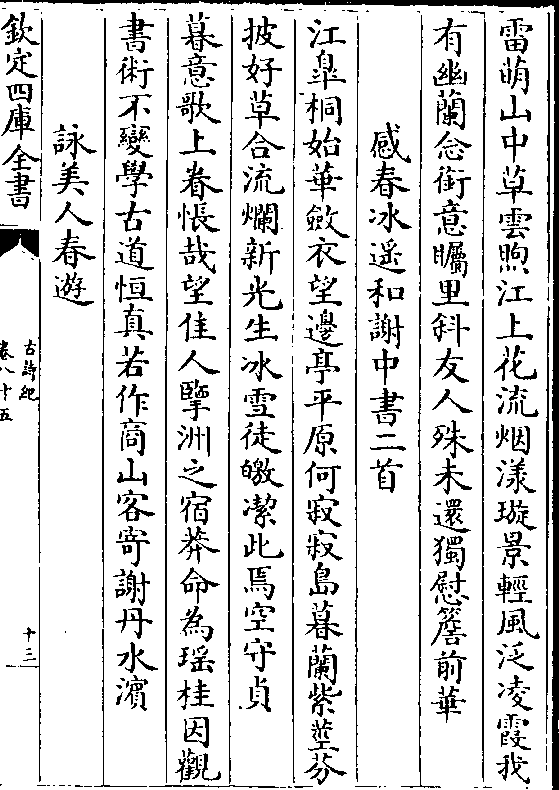 雷萌山中草雲煦江上花流烟漾璇景輕風泛凌霞我
有幽蘭念銜意矚里斜友人殊未還獨慰簷前華
感春冰遥和謝中書二首
江臯桐始華斂衣望邊亭平原何寂寂島暮蘭紫莖芬
披好草合流爛新光生冰雪徒皦潔此焉空守貞
暮意歌上眷悵哉望佳人擥洲之宿莽命為瑶桂因觀
書術不變學古道恒真若作商山客寄謝丹水濱
詠美人春遊
欽定四庫全書
古詩紀
卷八十五
十三